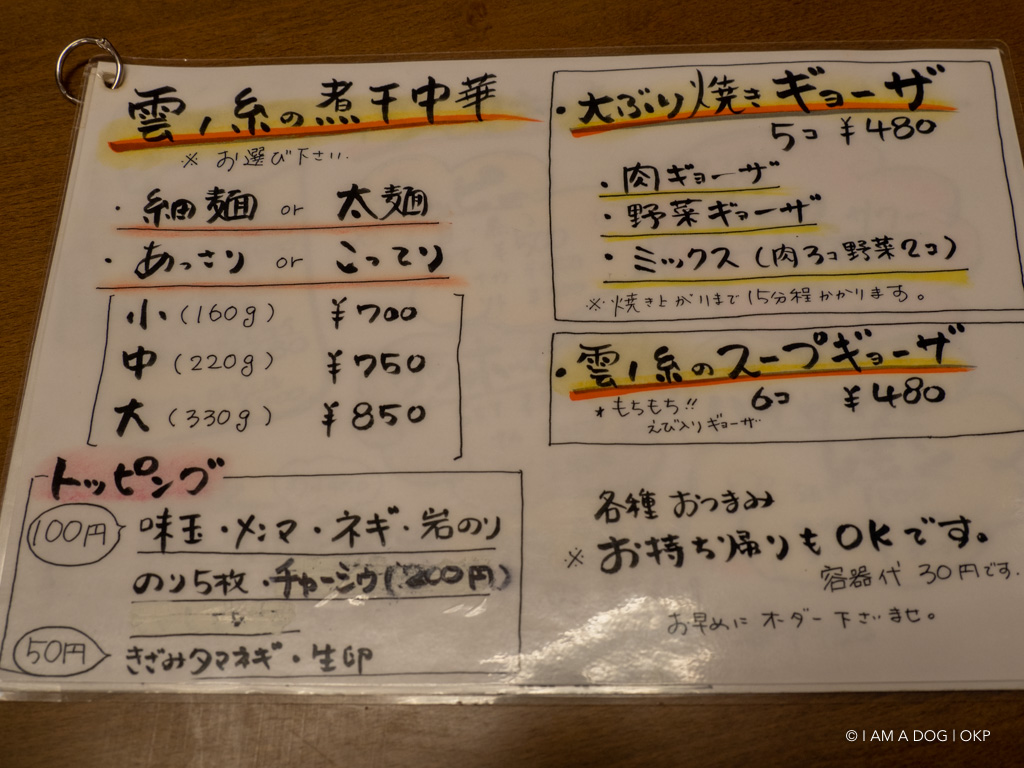 雲ノ糸の煮干中華
※ お選び下さい.
・細麺 or 太麺
・あっさり or こってり
小(160g) ¥700
中(220g) ¥750
大(330g) ¥850
トッピング
100円 味玉・メンマ・ネギ・岩のり
のり5枚・チャーシウ(200円)
50円 きざみタマネギ・生卵
・大ぶり焼きギョーザ
5コ ¥480
・肉ギョーザ
・野菜ギョーザ
・ミックス(肉3コ野菜2コ)
※焼き上がりまで15分程かかります。
・雲ノ糸のスープギョーザ
6コ ¥480
*もちもち!!
えび入りギョーザ
各種 おつまみ
※ お持ち帰りもOKです。
容器代 30円です.
お早めにオーダー下さいませ。
© I AM A DOG | OKP